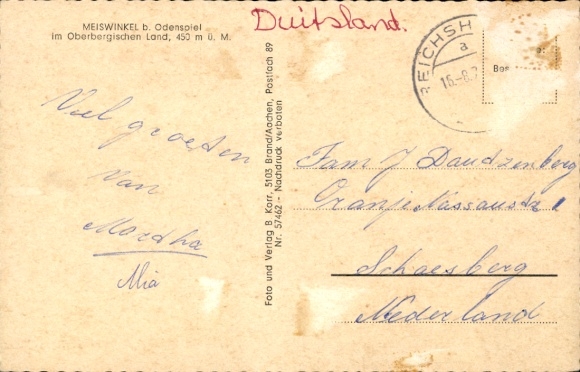 MEISWINKEL b. Odenspiel
im Oberbergischen Land, 450 m ü. M.
Duitsland.
REICHSH
a
15.-8.7
Veel groeten
van
Martha
Mia
Foto und Verlag B. Korr, 5103 Brand/Aachen, Postfach 89
Nr. 57462 - Nachdruck verboten
Fam J Dautzenberg
Oranje Nassaustr 1
Schaesberg
Nederland